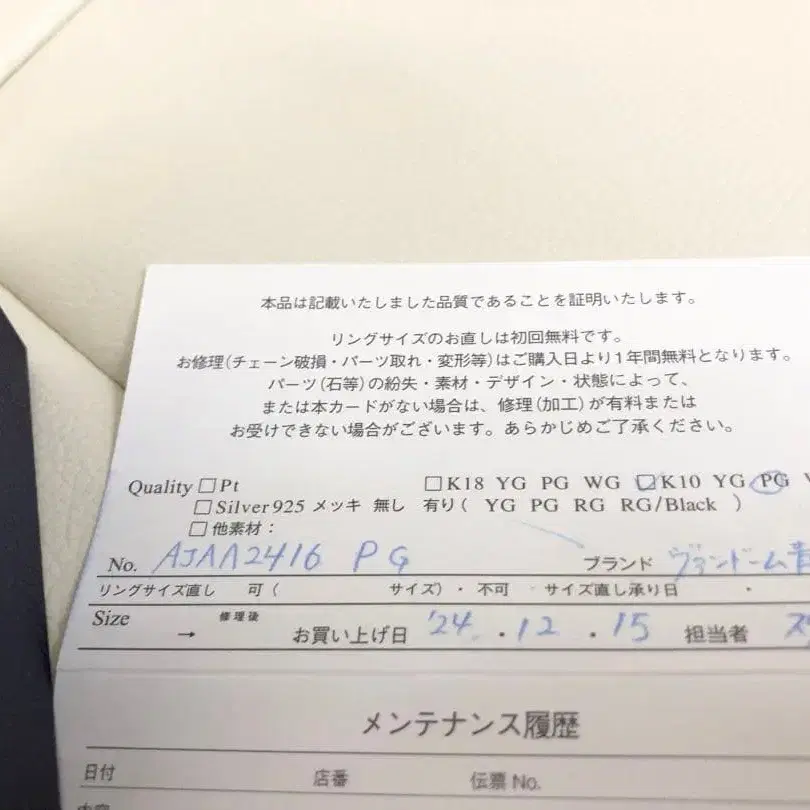 本品は記載いたしました品質であることを証明いたします。
リングサイズのお直しは初回無料です。
お修理(チェーン破損・パーツ取れ・変形等)はご購入日より1年間無料となります。
パーツ(石等)の紛失・素材・デザイン・状態によって、
または本カードがない場合は、修理(加工)が有料または
お受けできない場合がございます。あらかじめご了承ください。
Quality □Pt □K18 YG PG WG ☑K10 YG PG
□Silver925 メッキ 無し 有り( YG PG RG RG/Black )
□他素材:
No. AJAA2416 PG ブランド ヴァンドーム青
リングサイズ直し 可( サイズ)・不可 サイズ直し承り日 ・
Size → 修理後 お買い上げ日 '24.・12.・15 担当者
メンテナンス履歴
日付 店番 伝票No.
内容